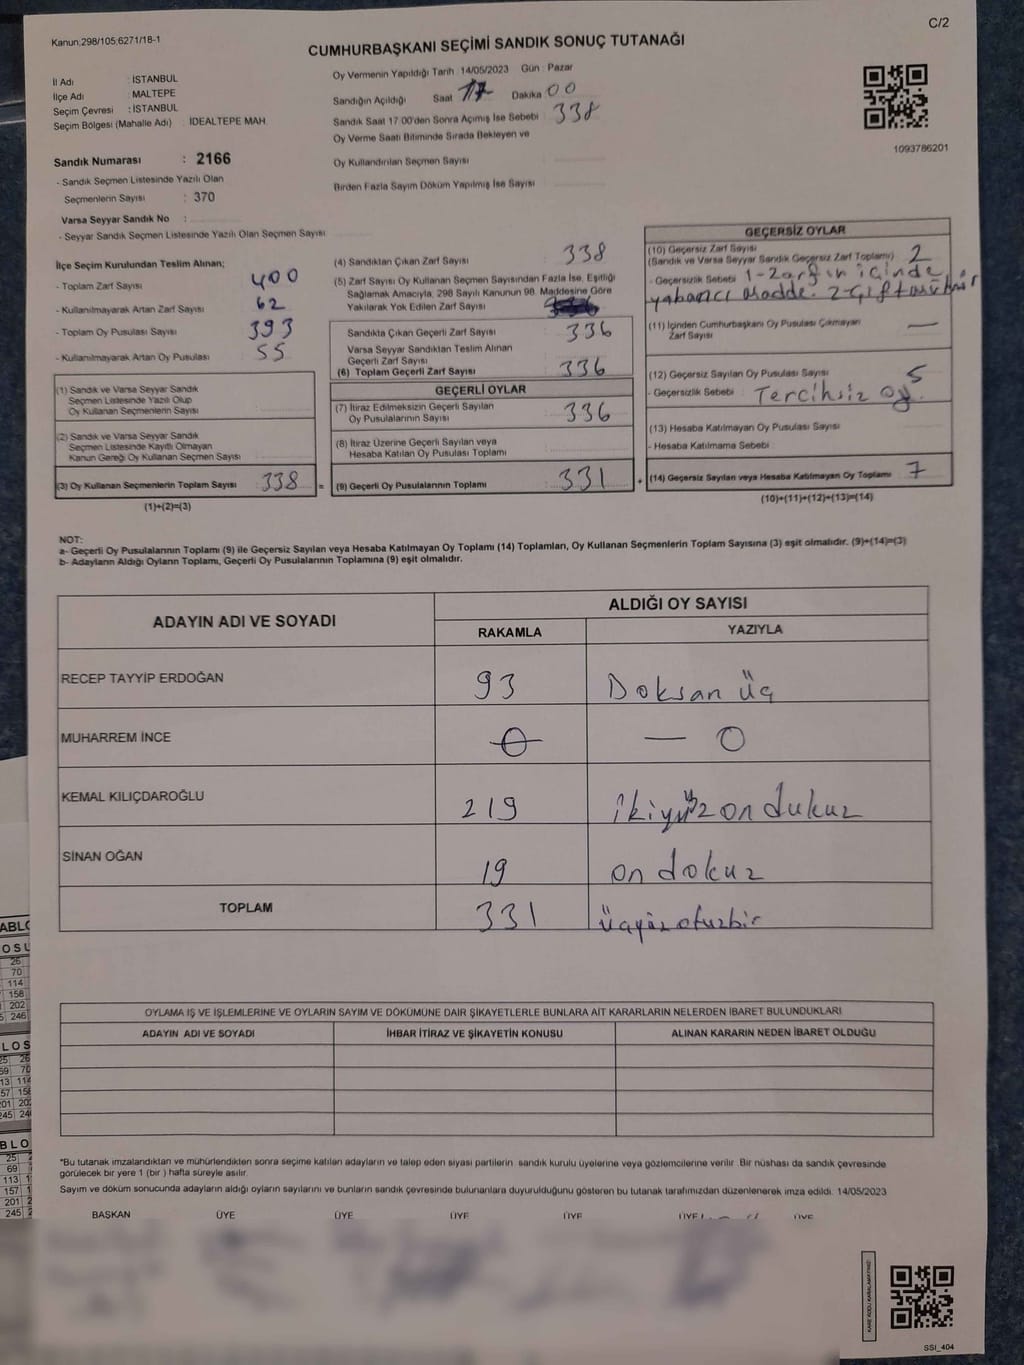 C/2
Kanun;298/105;6271/18-1
CUMHURBAŞKANI SEÇİMİ SANDIK SONUÇ TUTANAĞI
İl Adı : İSTANBUL
İlçe Adı : MALTEPE
Seçim Çevresi : İSTANBUL
Seçim Bölgesi (Mahalle Adı) : İDEALTEPE MAH.
Oy Vermenin Yapıldığı Tarih :14/05/2023 Gün : Pazar
Sandığın Açıldığı Saat 17 Dakika 00
Sandık Saat 17:00'den Sonra Açımış İse Sebebi 338
Oy Verme Saati Bitiminde Sırada Bekleyen ve
Oy Kullandırılan Seçmen Sayısı
Birden Fazla Sayım Döküm Yapılmış İse Sayısı
1093786201
Sandık Numarası : 2166
- Sandık Seçmen Listesinde Yazılı Olan
Seçmenlerin Sayısı : 370
Varsa Seyyar Sandık No :
- Seyyar Sandık Seçmen Listesinde Yazılı Olan Seçmen Sayısı
İlçe Seçim Kurulundan Teslim Alınan;
- Toplam Zarf Sayısı 400
- Kullanılmayarak Artan Zarf Sayısı 62
- Toplam Oy Pusulası Sayısı 393
- Kullanılmayarak Artan Oy Pusulası 55
(1) Sandık ve Varsa Seyyar Sandık
Seçmen Listesinde Yazılı Olup
Oy Kullanan Seçmenlerin Sayısı
(2) Sandık ve Varsa Seyyar Sandık
Seçmen Listesinde Kayıtlı Olmayan
Kanun Gereği Oy Kullanan Seçmen Sayısı
(3) Oy Kullanan Seçmenlerin Toplam Sayısı 338 =
(1)+(2)=(3)
(4) Sandıktan Çıkan Zarf Sayısı 338
(5) Zarf Sayısı Oy Kullanan Seçmen Sayısından Fazla İse, Eşitliği
Sağlamak Amacıyla, 298 Sayılı Kanunun 98. Maddesine Göre
Yakılarak Yok Edilen Zarf Sayısı
Sandıkta Çıkan Geçerli Zarf Sayısı 336
Varsa Seyyar Sandıktan Teslim Alınan
Geçerli Zarf Sayısı
(6) Toplam Geçerli Zarf Sayısı 336
GEÇERLİ OYLAR
(7) İtiraz Edilmeksizin Geçerli Sayılan
Oy Pusulalarının Sayısı 336
(8) İtiraz Üzerine Geçerli Sayılan veya
Hesaba Katılan Oy Pusulası Toplamı
(9) Geçerli Oy Pusulalarının Toplamı 331 +
GEÇERSİZ OYLAR
(10) Geçersiz Zarf Sayısı
(Sandık ve Varsa Seyyar Sandık Geçersiz Zarf Toplamı) 2
- Geçersizlik Sebebi 1-Zarfın içinde
yabancı madde. 2-Çift mühür
(11) İçinden Cumhurbaşkanı Oy Pusulası Çıkmayan
Zarf Sayısı —
(12) Geçersiz Sayılan Oy Pusulası Sayısı 5
- Geçersizlik Sebebi Tercihsiz oy.
(13) Hesaba Katılmayan Oy Pusulası Sayısı
- Hesaba Katılmama Sebebi
(14) Geçersiz Sayılan veya Hesaba Katılmayan Oy Toplamı 7
(10)+(11)+(12)+(13)=(14)
NOT:
a- Geçerli Oy Pusulalarının Toplamı (9) ile Geçersiz Sayılan veya Hesaba Katılmayan Oy Toplamı (14) Toplamları, Oy Kullanan Seçmenlerin Toplam Sayısına (3) eşit olmalıdır. (9)+(14)=(3)
b- Adayların Aldığı Oyların Toplamı, Geçerli Oy Pusulalarının Toplamına (9) eşit olmalıdır.
ADAYIN ADI VE SOYADI
ALDIĞI OY SAYISI
RAKAMLA YAZIYLA
RECEP TAYYİP ERDOĞAN 93 Doksan üç
MUHARREM İNCE 0 — 0
KEMAL KILIÇDAROĞLU 219 ikiyüz on dukuz
SİNAN OĞAN 19 on dokuz
TOPLAM 331 üçyüz otuzbir
OYLAMA İŞ VE İŞLEMLERİNE VE OYLARIN SAYIM VE DÖKÜMÜNE DAİR ŞİKAYETLERLE BUNLARA AİT KARARLARIN NELERDEN İBARET BULUNDUKLARI
ADAYIN ADI VE SOYADI İHBAR İTİRAZ VE ŞİKAYETİN KONUSU ALINAN KARARIN NEDEN İBARET OLDUĞU
*Bu tutanak imzalandıktan ve mühürlendikten sonra seçime katılan adayların ve talep eden siyasi partilerin sandık kurulu üyelerine veya gözlemcilerine verilir. Bir nüshası da sandık çevresinde
görülecek bir yere 1 (bir ) hafta süreyle asılır.
Sayım ve döküm sonucunda adayların aldığı oyların sayılarını ve bunların sandık çevresinde bulunanlara duyurulduğunu gösteren bu tutanak tarafımızdan düzenlenerek imza edildi. 14/05/2023
BAŞKAN ÜYE ÜYE ÜYE ÜYE ÜYE ÜYE
SSI_404